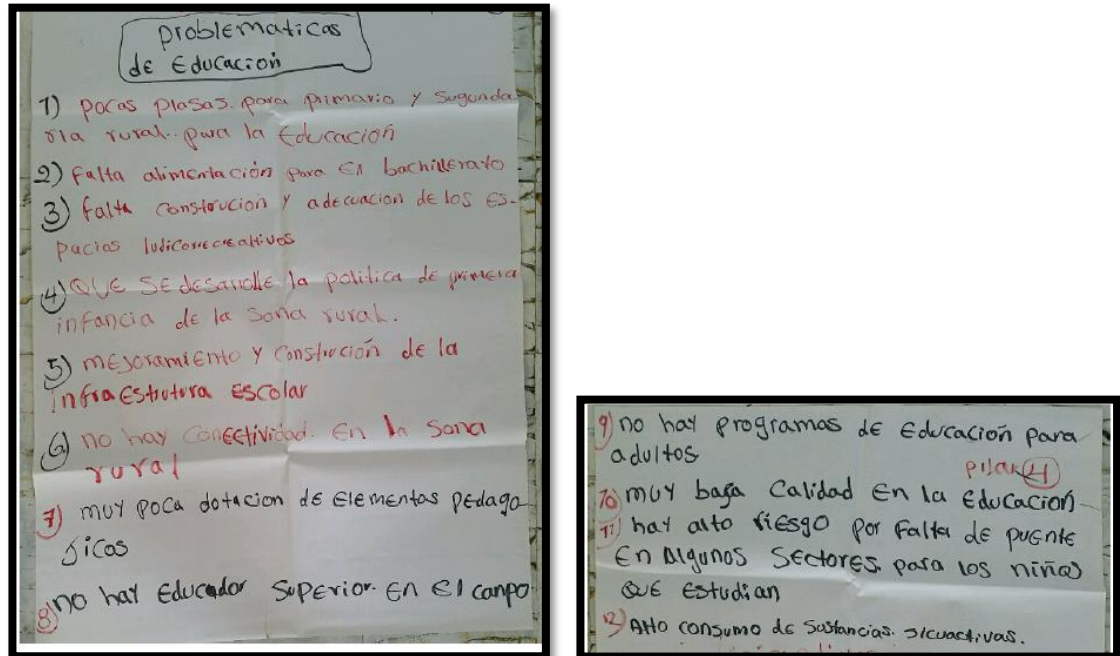 problematicas
de Educación
1) pocas plasas para primaria y sugunda
ria rural para la Educación
2) falta alimentación para El bachillerato
3) falta construcion y adecuacion de los es-
pacios ludicorecreativos
4) QUE SE desarrolle la politica de primera
infancia de la sona rural.
5) mejoramiento y construción de la
infraEstrutura Escolar
6) no hay conectividad. En la sona
rural
7) muy poca dotacion de Elementos pedago
jicos
8) no hay Educador Superior. En El canpo
9) no hay programas de Educación para
adultos
pilar 4
10) muy baga Calidad En la Educación
11) hay alto riesgo por falta de puente
En Algunos SEctores. para los niños
QUE Estudian
12) Alto consumo de sustancias. sicuactivas.